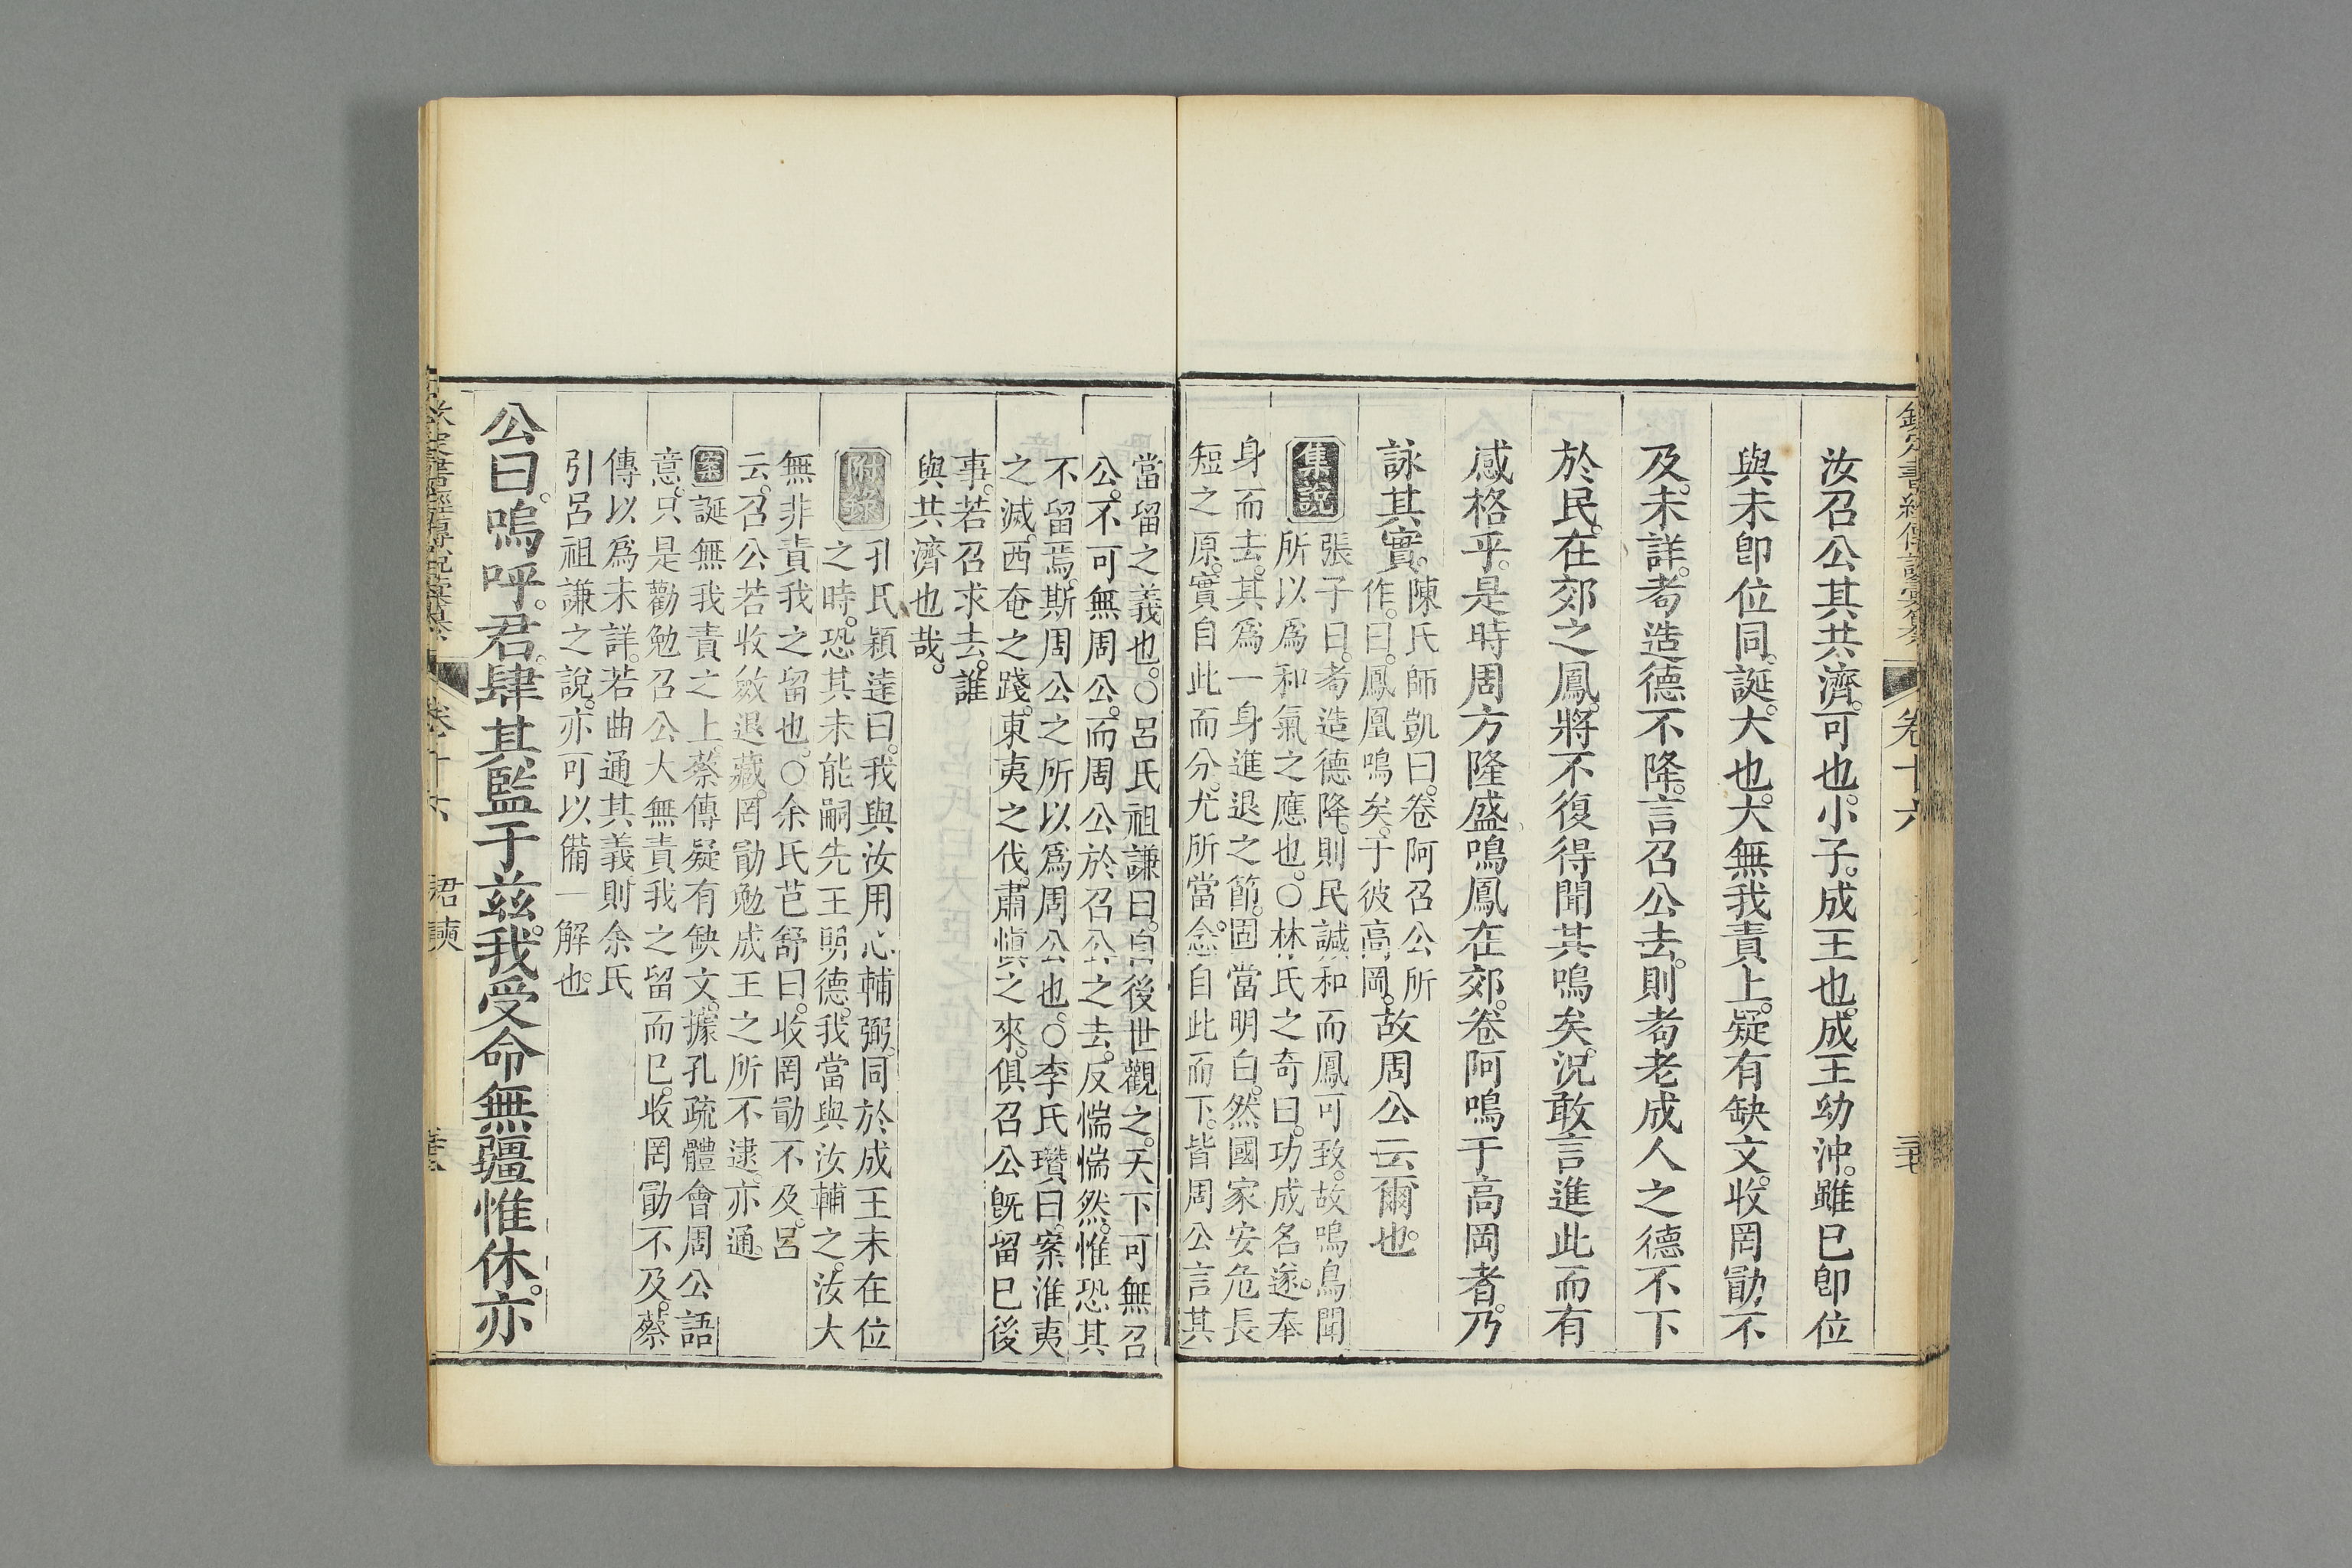 汝召公其共濟。可也。小子。成王也。成王幼沖。雖已卽位
與未卽位同。誕。大也。大無我責上。疑有缺文。收罔勖不
及。未詳。耇造德不降。言召公去。則耇老成人之德不下
於民。在郊之鳳。將不復得聞其鳴矣。況敢言進此而有
感格乎。是時周方隆盛。鳴鳳在郊。卷阿鳴于高岡者。乃
詠其實。
陳氏師凱曰。卷阿召公所
作。曰。鳳凰鳴矣。于彼高岡。
故周公云爾也。
集說
張子曰。耇造德降。則民諴和而鳳可致。故鳴鳥聞
所以爲和氣之應也。○林氏之奇曰。功成名遂。奉
身而去。其爲一身進退之節。固當明白。然國家安危長
短之原。實自此而分。尤所當念。自此而下。皆周公言其
當留之義也。○呂氏祖謙曰。自後世觀之。天下可無召
公。不可無周公。而周公於召公之去。反惴惴然。惟恐其
不留焉。斯周公之所以爲周公也。○李氏瓚曰。案淮夷
之滅。西奄之踐。東夷之伐。肅愼之來。俱召公旣留已後
事。若召求去。誰
與共濟也哉。
附錄
孔氏穎達曰。我與汝用心輔弼。同於成王未在位
之時。恐其未能嗣先王明德。我當與汝輔之。汝大
無非責我之留也。○余氏芑舒曰。收罔勖不及。呂
云。召公若收斂退藏。罔勖勉成王之所不逮。亦通。
案
誕無我責之上。蔡傳疑有缺文。據孔疏體會周公語
意。只是勸勉召公大無責我之留而已。收罔勖不及。蔡
傳以爲未詳。若曲通其義則余氏
引呂祖謙之說。亦可以備一解也。
公曰。嗚呼。君。肆其監于茲。我受命無疆惟休。亦
卷十六
君奭